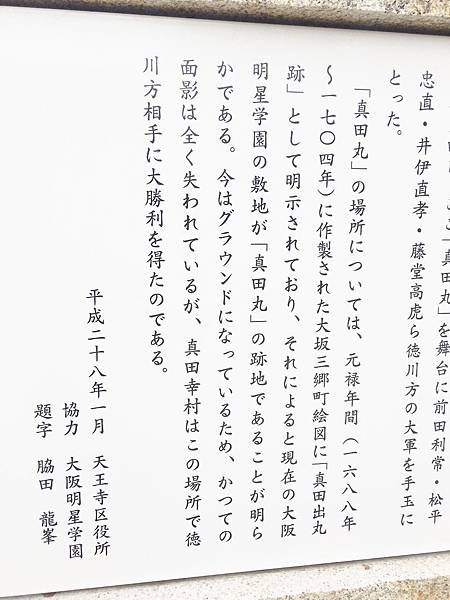 「真田丸」を舞台に前田利常・松平
忠直・井伊直孝・藤堂高虎ら徳川方の大軍を手玉に
とった。
「真田丸」の場所については、元禄年間（一六八八年
～一七〇四年）に作製された大坂三郷町絵図に「真田出丸
跡」として明示されており、それによると現在の大阪
明星学園の敷地が「真田丸」の跡地であることが明ら
かである。今はグラウンドになっているため、かつての
面影は全く失われているが、真田幸村はこの場所で徳
川方相手に大勝利を得たのである。
平成二十八年一月　天王寺区役所
協力　大阪明星学園
題字　脇田　龍峯